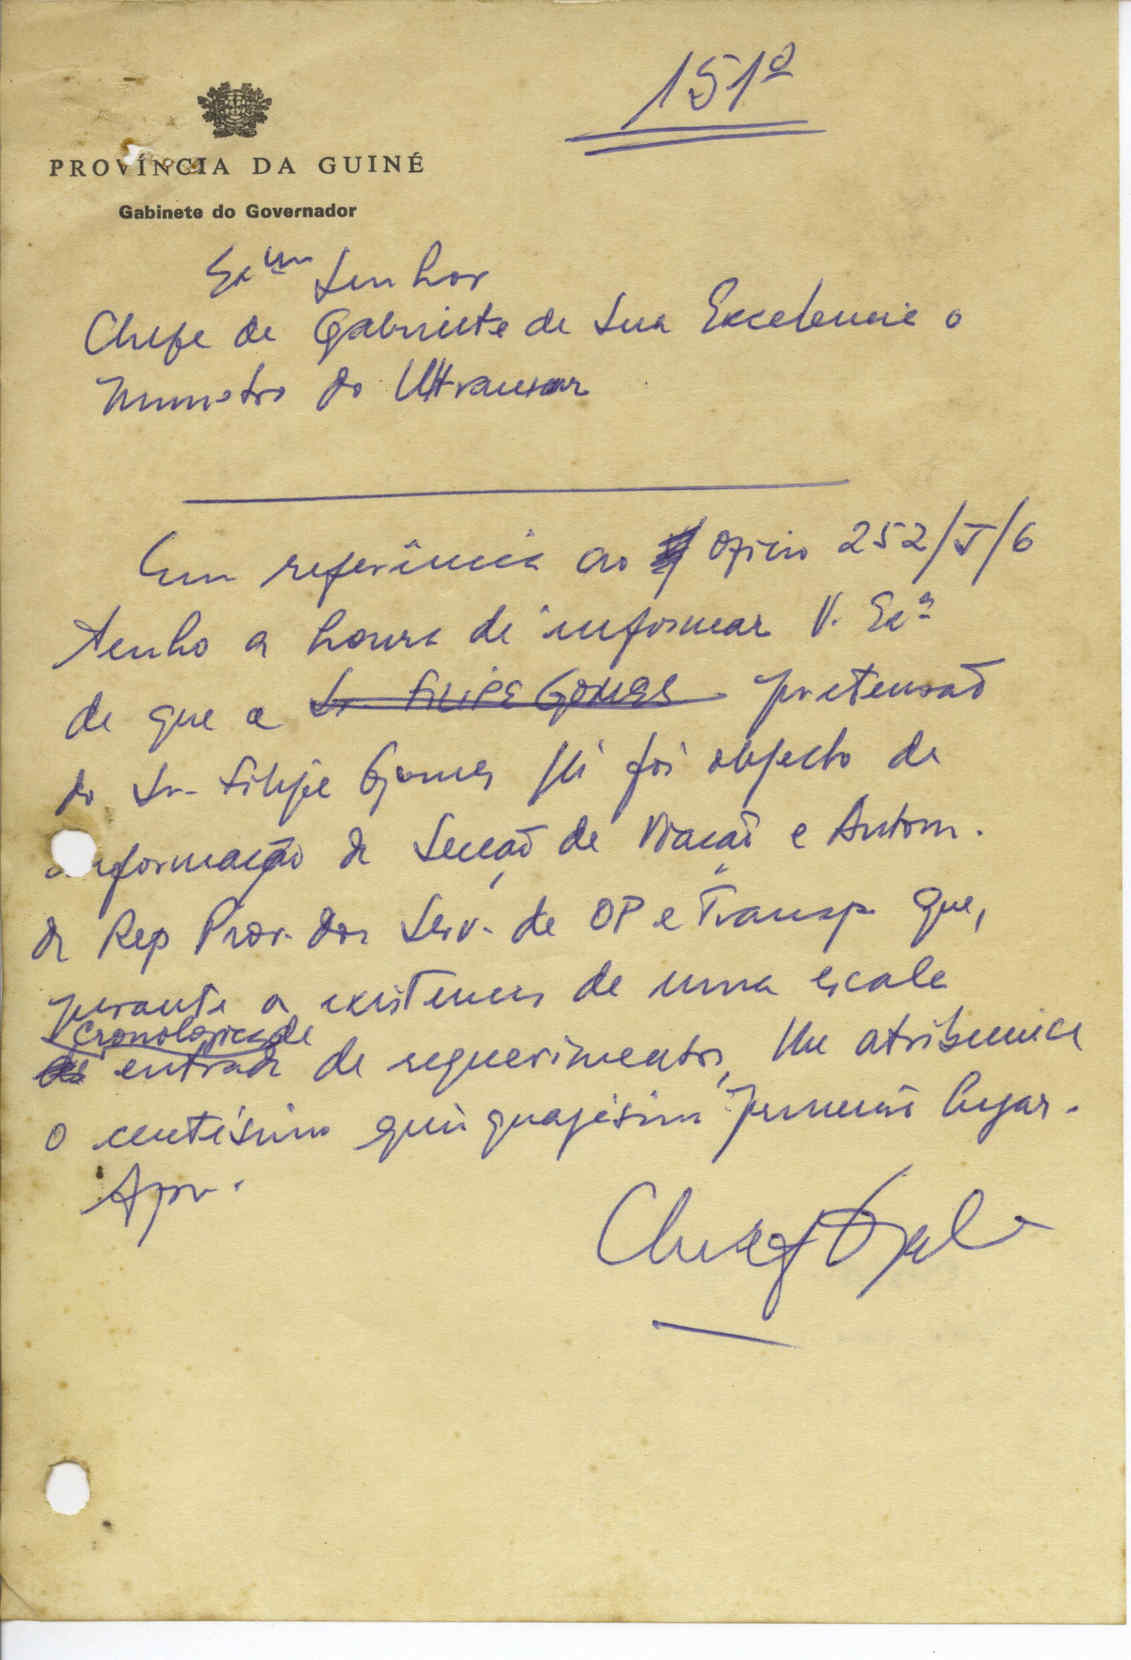 151º
PROVÍNCIA DA GUINÉ
Gabinete do Governador
Exmº Senhor
Chefe de Gabinete de Sua Excelencia o
Ministro do Ultramar
Em referência ao Oficio 252/J/6
tenho a honra de informar V. Exª
de que a Sr. FILIPE GOMES pretensão
do Sr. Filipe Gomes já foi objecto de
informação da Secção de Viação e Autom.
da Rep Prov. dos Serv. de OP e Transp que,
perante a existencia de uma escala
cronologica de
entrada de requerimentos, lhe atribuiu
o centésimo quinquagésimo primeiro lugar.
Apr.